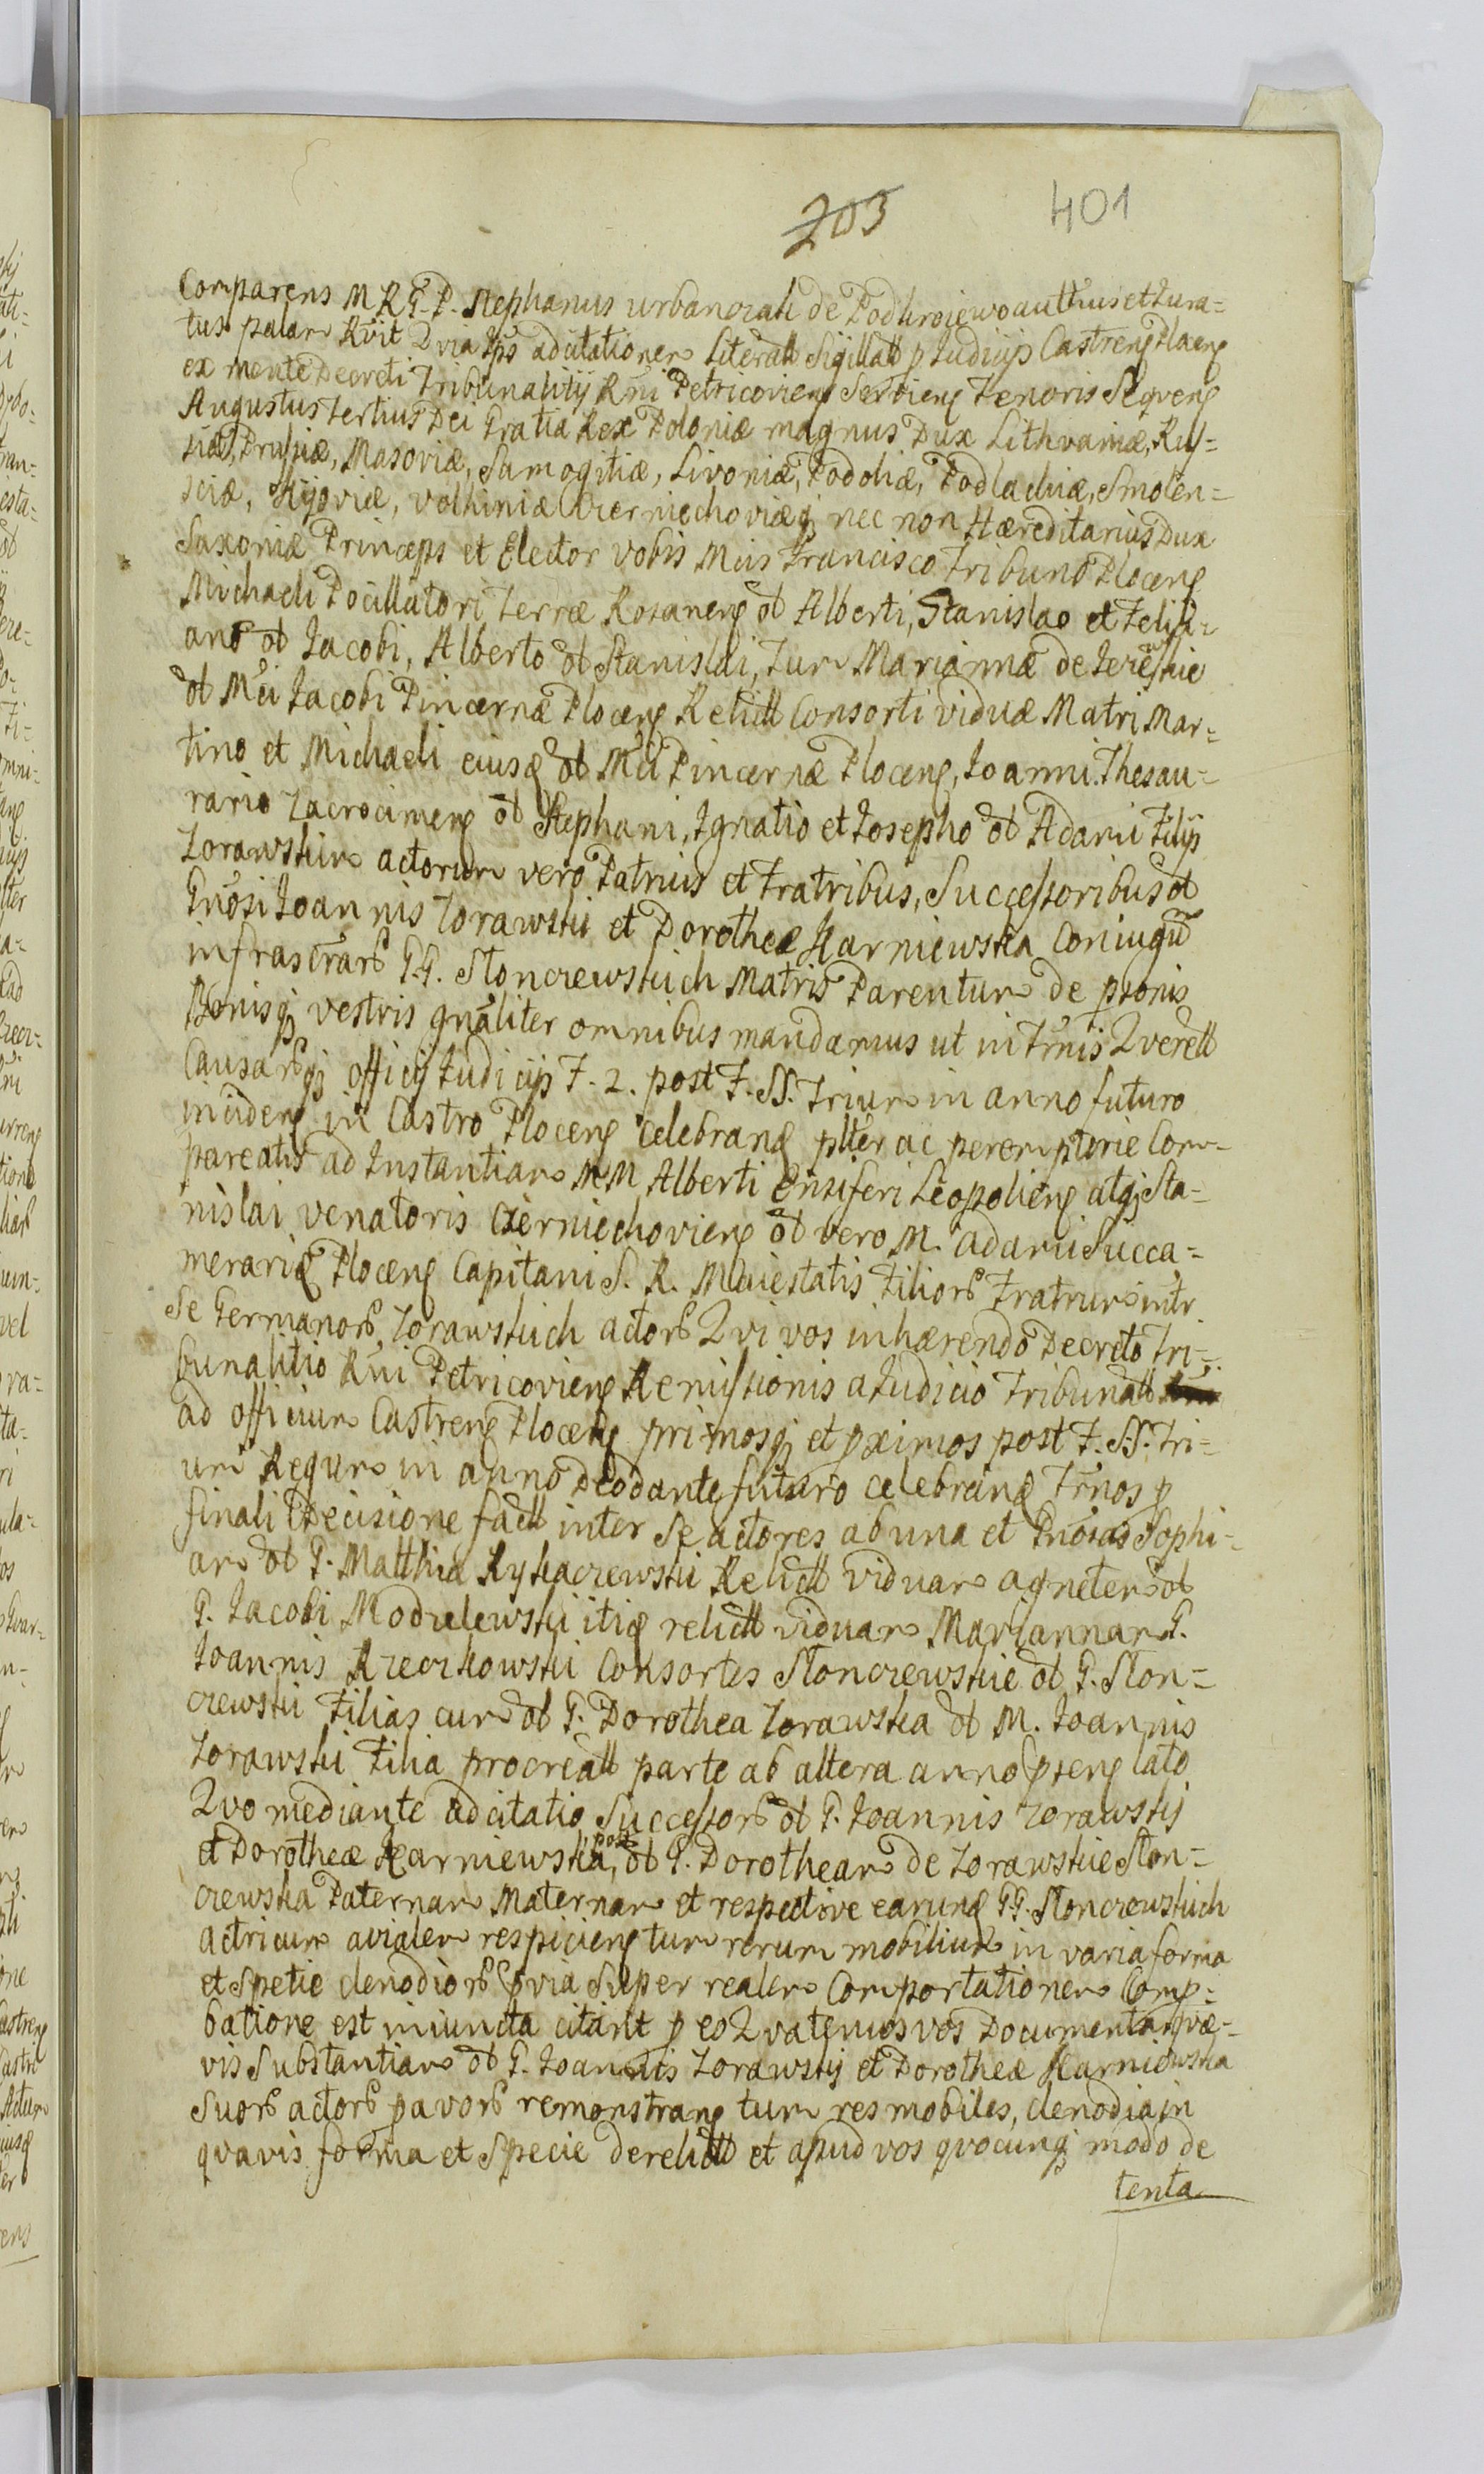 203
401
Comparens M R G. P. Stephanus Urbanczali de Podhroiewo authus et Iura=
tus palam Rvit Qvia Ips adcitationem Literall Sigillall p Iudicijs Castreng Placeng
ex mente Decreti Tribunalitij Rni Petricovieng Servieng Tenoris Seqveng
Augustus Tertius Dei Gratia Rex Poloniæ magnus Dux Lithvaniæ, Rus=
siæ, Prussiæ, Masoviæ, Samogitiæ, Livoniæ, Podoliæ, Podlachiæ, Smolen=
sciæ, Kijoviæ, Volhiniæ Czerniechoviæq nec non Hæreditarius Dux
Saxoniæ Princeps et Elector Vobis Mcis Francisco Tribuno Ploceng
Michaeli Pocillatori Terræ Rozaneng ol Alberti, Stanislao et Felici=
ano ol Iacobi, Alberto ol Stanislai, Tum Mariannæ de
ol Mci Iacobi Pincernæ Ploceng Relictt Consorti Viduæ Matri Mar=
tino et Michaeli eiusq ol Mci Pincernæ Ploceng, Ioanni Thesau=
rario Zacrocimeng ol Stephani, Ignatio et Iosepho ol Adami Filijs
Zorawskim actorum vero Patruis et Fratribus, Successoribus ol
Gnosi Ioannis Zorawski et Dorotheæ Karniewska Coniugu
infrascrarb G.G. Stonczewskich Matris Parentum de psonis
Bonisq vestris gnaliter omnibus mandamus ut in Trnis Qverell
Causarbq officij Iudicijs F. 2. post F. SS. Trium in anno futuro
incideng in Castro Ploceng celebrang pltter ac peremptorie Com=
pareatis ad Instantiam MM Alberti Ensiferi Leopolieng atq Sta=
nislai venatoris Czerniechovieng ol vero M. Adami Succa=
merarij Ploceng Capitani S. R. Maiestatis Filiorb Fratrum intr
se Germanorb Zorawskich actorb Qvi vos inhærendo Decreto Tri=
bunalitio Rni Petricovieng Remissionis a Iudicio Tribunall
ad officium Castreng Ploceng primosq et pximos post F. SS. Tri=
um Regum in anno Deodante futuro celebrang Trnos p
finali Decisione factt inter Se actores ab una et Gnosas Sophi=
am ol G. Matthiæ Rykaczewski Relictt viduam agnetem ol
G. Iacobi Modzelewski itiq relictt viduam Mariannam G.
Ioannis Krzeczkowski Consortes Stonczewskie ol G. Ston=
czewski Filias cum ol G. Dorothea Zorawska ol M. Ioannis
Zorawski Filia procreatt parte ab altera anno pseng lato
Qvo mediante adcitatio Successorb ol G. Ioannis Zorawskij
et Dorotheæ Karniewska, post ol G. Dorotheam de Zorawskie Ston=
czewska Paternam Maternam et respective earung G.G. Stonczewskich
actricum avialem respicieng tum rerum mobilium in varia forma
et Spetie clenodiorb pvia Super realem Comportationem Comp=
batione est iniuncta citant p eo Qvatenus vos Documenta qvæ=
vis Substantiam ol G. Ioannis Zorawskij et Dorotheæ Karniewska
Suorb actorb pavorb remonstrang tum res mobiles, clenodia in
qvavis forma et Specie derelictt et apud vos qvocunq modo de
tenta